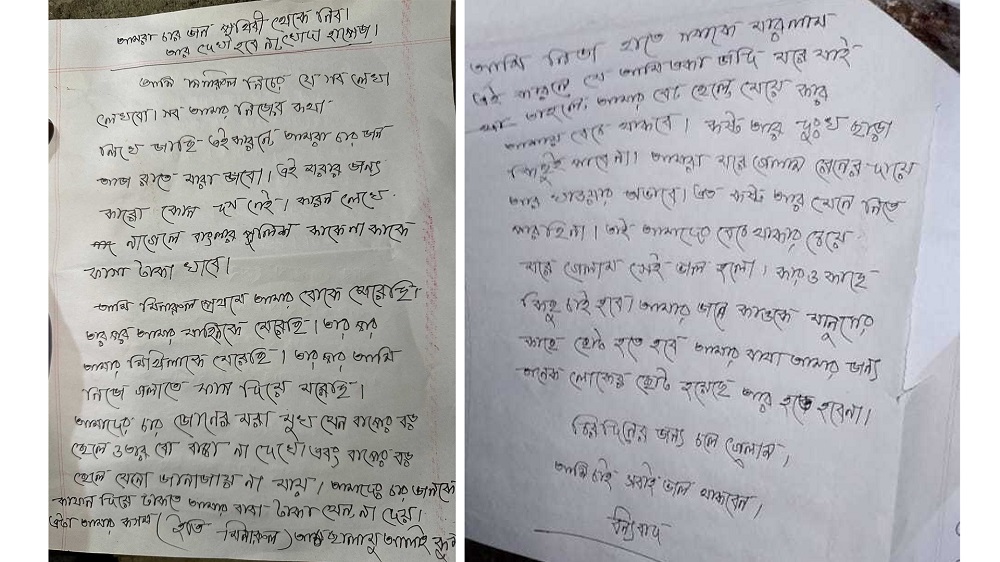 আমরা চার জন পৃথিবী থেকে বিদায়
আর দেখা হবে না খোদা হাফেজ।
আমি মিনারুল নিচের যে সব লেখা
লেখবো। সব আমার নিজের কথা
লিখে জাছি এই কারনে, আমরা চার জন
আজ রাতে মারা জাবো। এই মরার জন্য
কারো কোন দোষ নেই। কারন লেখে
না গেলে বাংলার পুলিশ কাকে না কাকে
ফাসা টাকা খাবে।
আমি মিনারুল প্রথমে আমার বোকে মেরেছি।
তার পর আমার মাহিনকে মেরেছি। তার পর
আমার মিথিলাকে মেরেছি। তার পর আমি
নিজে গলাতে ফাস দিয়ে মরেছি।
আমাদের চার জোনের মরা মুখ যেন বাপের বড়
ছেলে ও তার বো বাচ্চা না দেখে। এবং বাপের বড়
ছেলে যেনো জানাজায় না যায়। আমাদের চার জনকে
কাফন দিয়ে ঢাকতে আমার বাবা টাকা যেন না দেয়।
এটা আমার কসম। (ইতি মিনারুল)
আমি নিজ হাতে সবাকে মারলাম
এই কারনে যে আমি একা জদি মরে যাই
তাহলে, আমার বো ছেলে মেয়ে কার
আসায় বেচে থাকবে। কষ্ট আর দুঃখ ছাড়া
কিছুই পাবে না। আমরা মরে গেলাম রিনের দায়ে
আর খাওয়ার অভাবে। এত কষ্ট আর মেনে নিতে
পারছিনা। তাই আমাদের বেচে থাকার চেয়ে
মরে গেলাম সেই ভাল হলো। কারও কাছে
কিছু চাই হবে। আমার জনে কাওকে মানুসের
কাছে ছোট হতে হবে আমার বাবা আমার জন্য
অনেক লোকের ছোট হয়েছে আর হতে হবেনা।
চির দিনের জন্য চলে গেলাম।
আমি চাই সবাই ভাল থাকবেন।
ধন্যবাদ